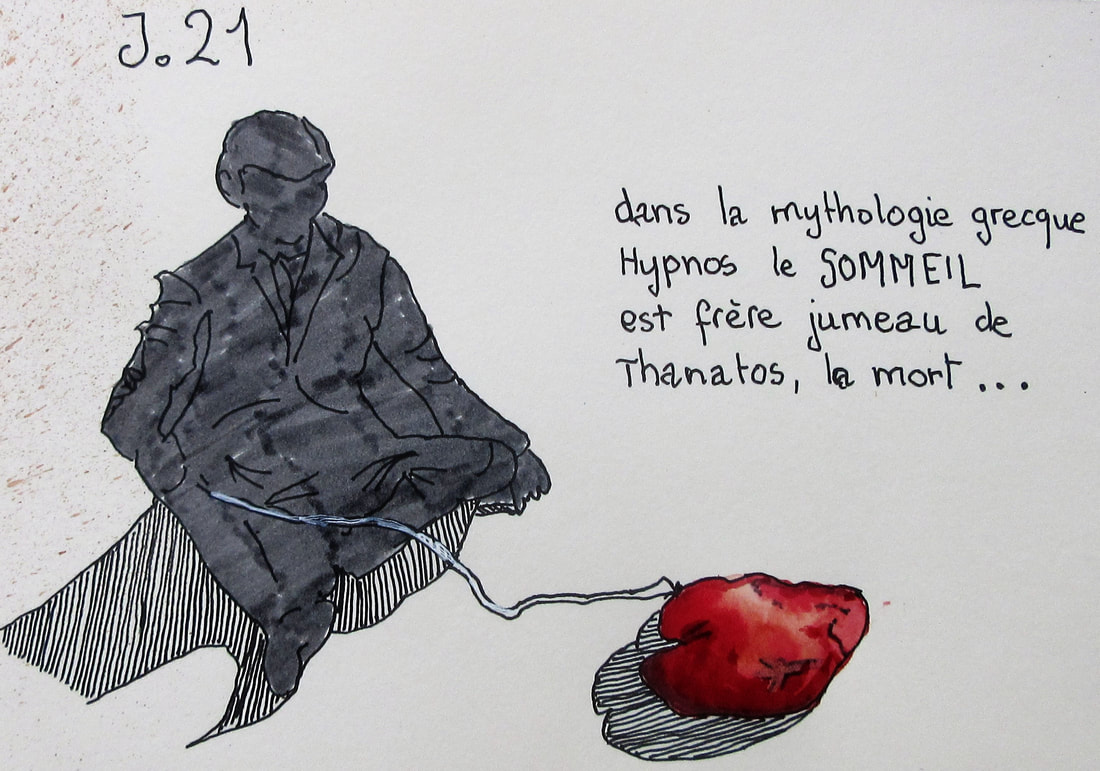 J.21
dans la mythologie grecque
Hypnos le SOMMEIL
est frère jumeau de
Thanatos, la mort ...